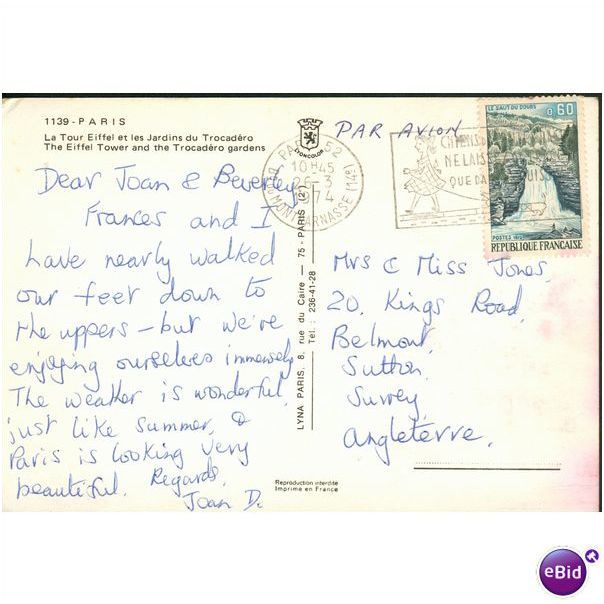 1139 - PARIS
La Tour Eiffel et les Jardins du Trocadéro
The Eiffel Tower and the Trocadéro gardens
Dear Joan & Beverley,
Frances and I
have nearly walked
our feet down to
the uppers - but we're
enjoying ourselves immensely
The weather is wonderful,
just like Summer, &
Paris is looking very
beautiful. Regards,
Joan D.
LYNA PARIS, 8, rue du Caire — 75 - PARIS (2e)
Tél. : 236-41-28
Reproduction interdite
Imprimé en France
PAR AVION
10H45
26-3
1974
MONTPARNASSE (14e)
NE LAISS
QUE DA
LE SAUT DU DOUBS
0,60
POSTES
REPUBLIQUE FRANÇAISE
Mrs & Miss Jones,
20, Kings Road,
Belmont,
Sutton,
Surrey,
Angleterre.
eBid